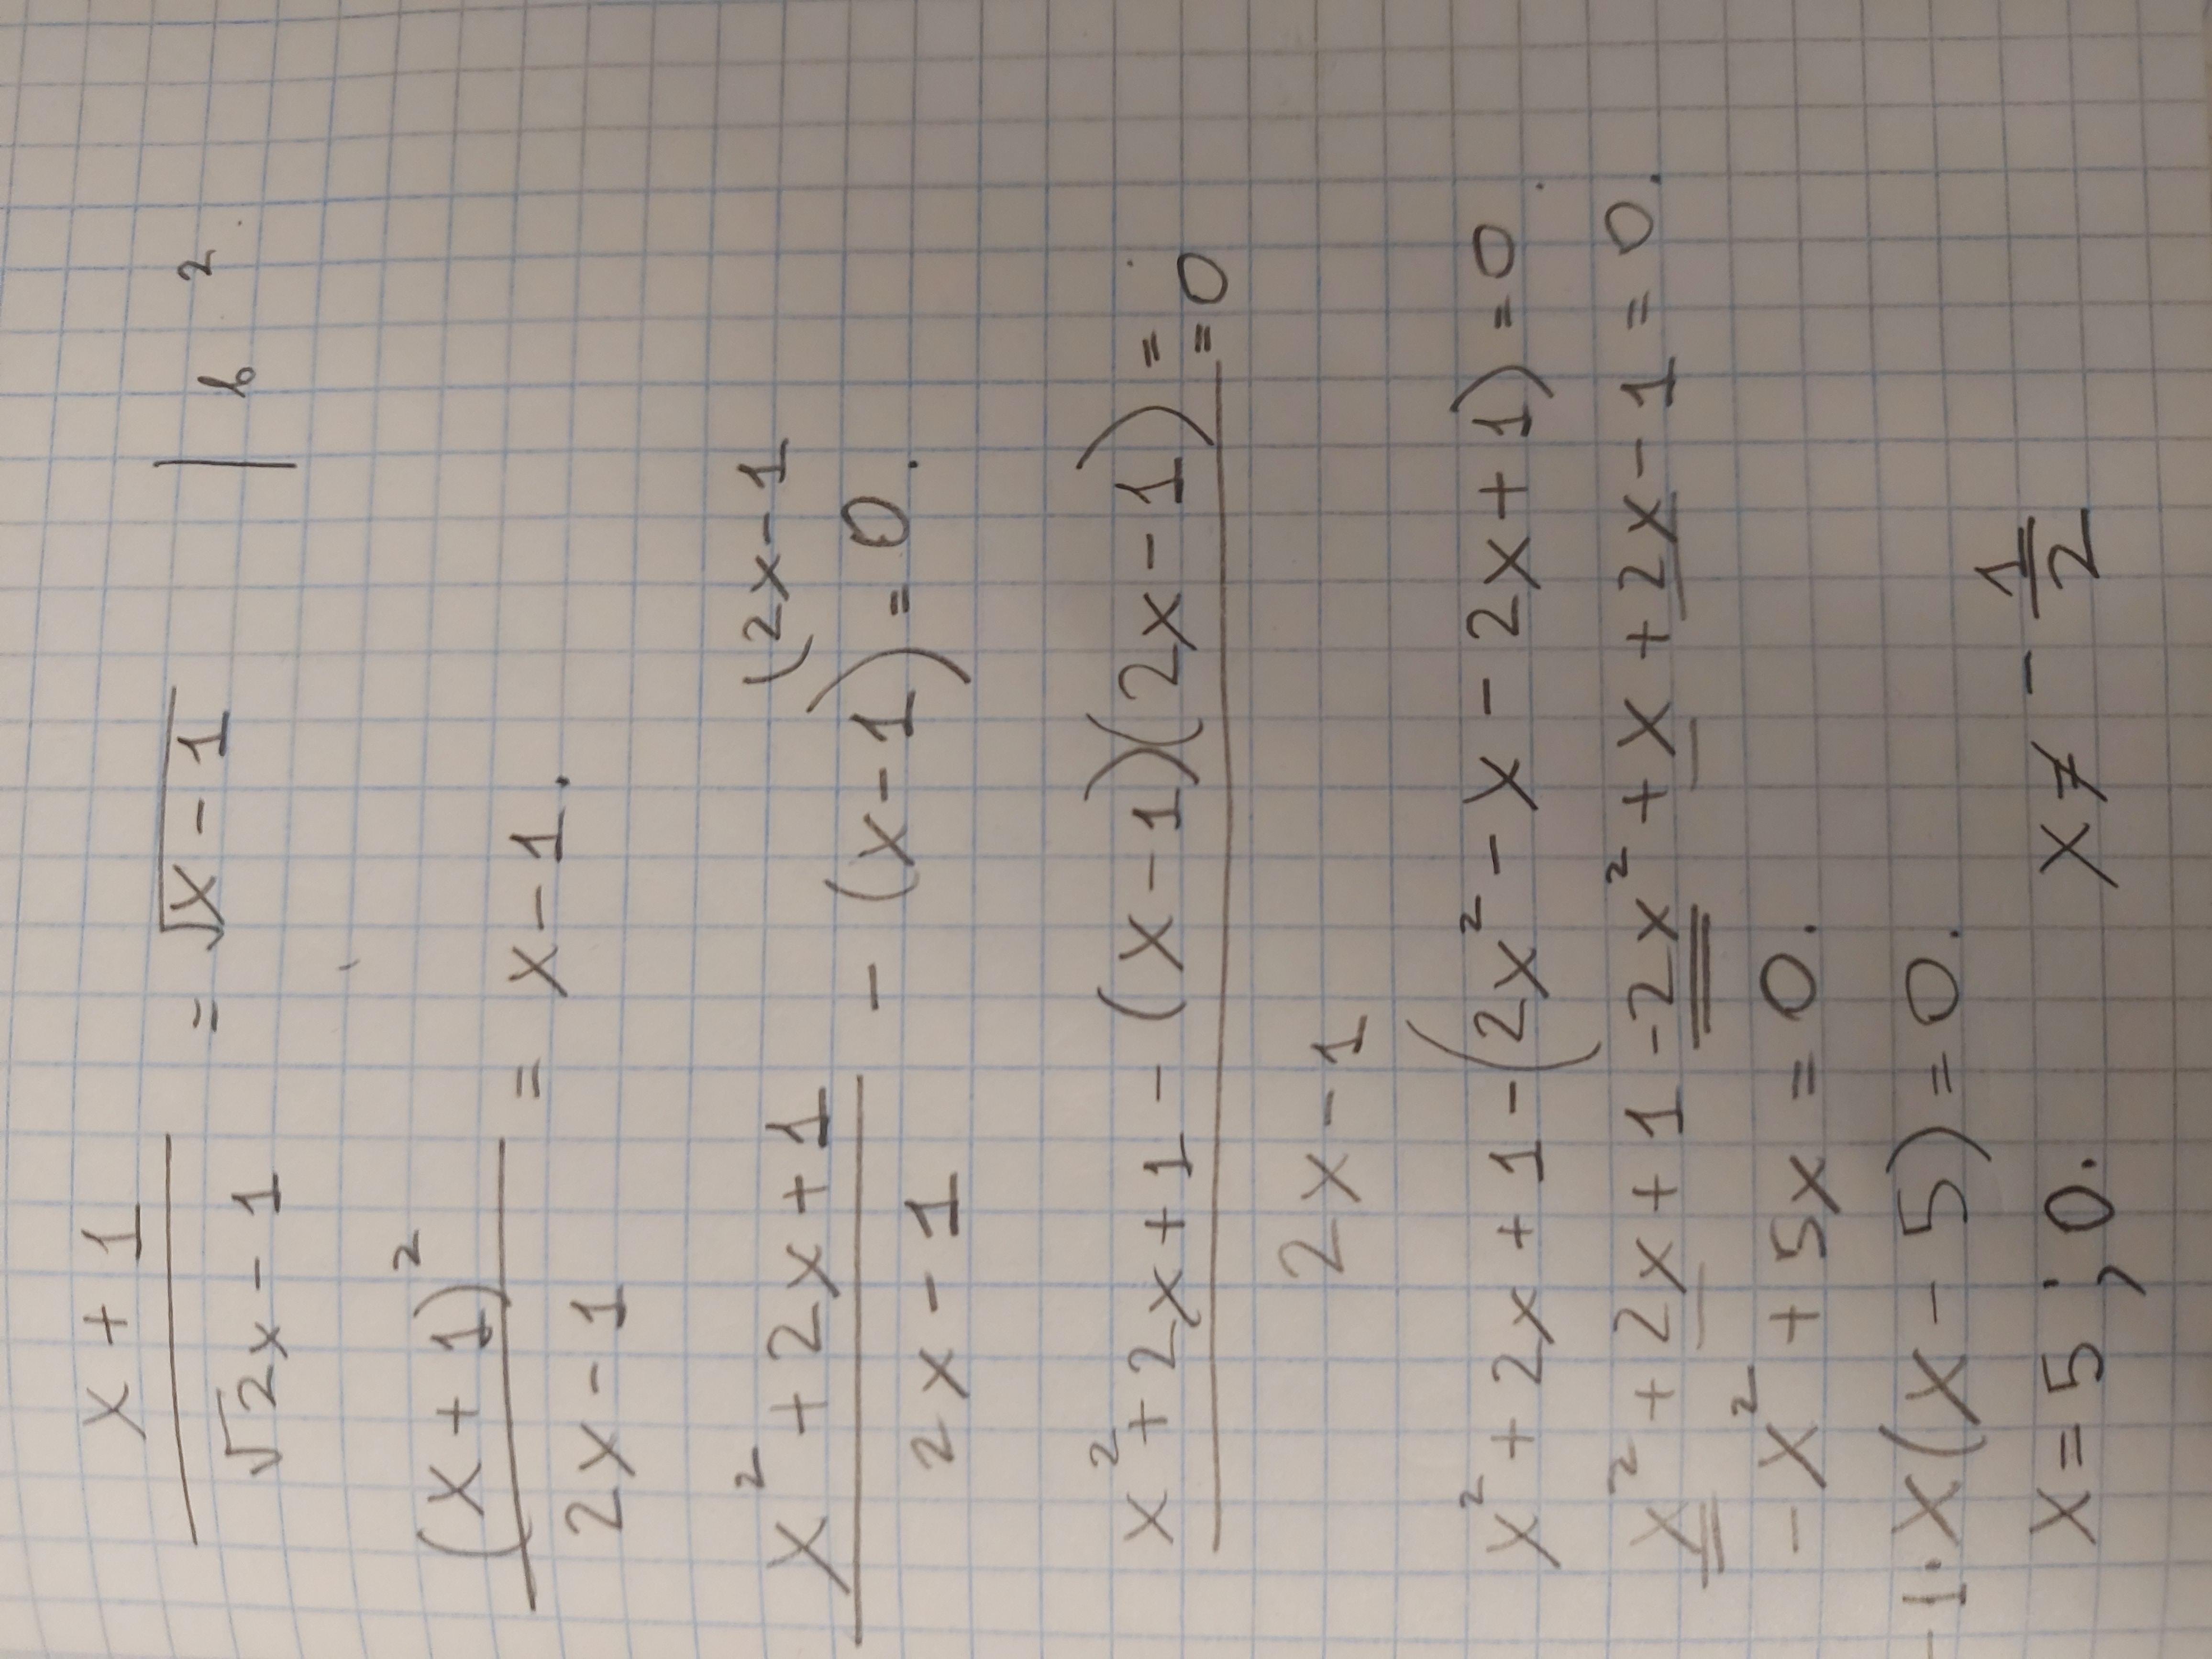 x + 1 / √2x - 1 = √x - 1 | b²
(x + 1)² / 2x - 1 = x - 1.
x² + 2x + 1 / 2x - 1 - (x - 1)(2x - 1 = 0.
x² + 2x + 1 - (x - 1)(2x - 1) / 2x - 1 = = 0
x² + 2x + 1 - (2x² - x - 2x + 1) = 0.
x² + 2x + 1 - 2x² + x + 2x - 1 = 0.
- x² + 5x = 0.
- 1 · x(x - 5) = 0.
x = 5 ; 0. x ≠ - 1/2